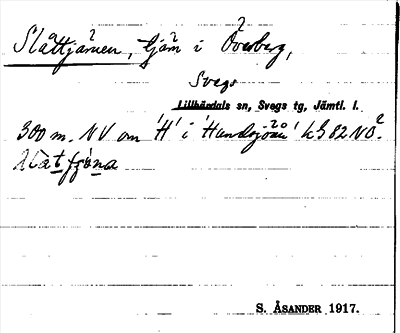 Slåttjärnen, tjärn i Överberg,
Svegs
Lillhärdals sn, Svegs tg, Jämtl. l.
300 m. NV om 'H' i 'Handsjöån' k§ 82 NO.
S. ÅSANDER 1917.